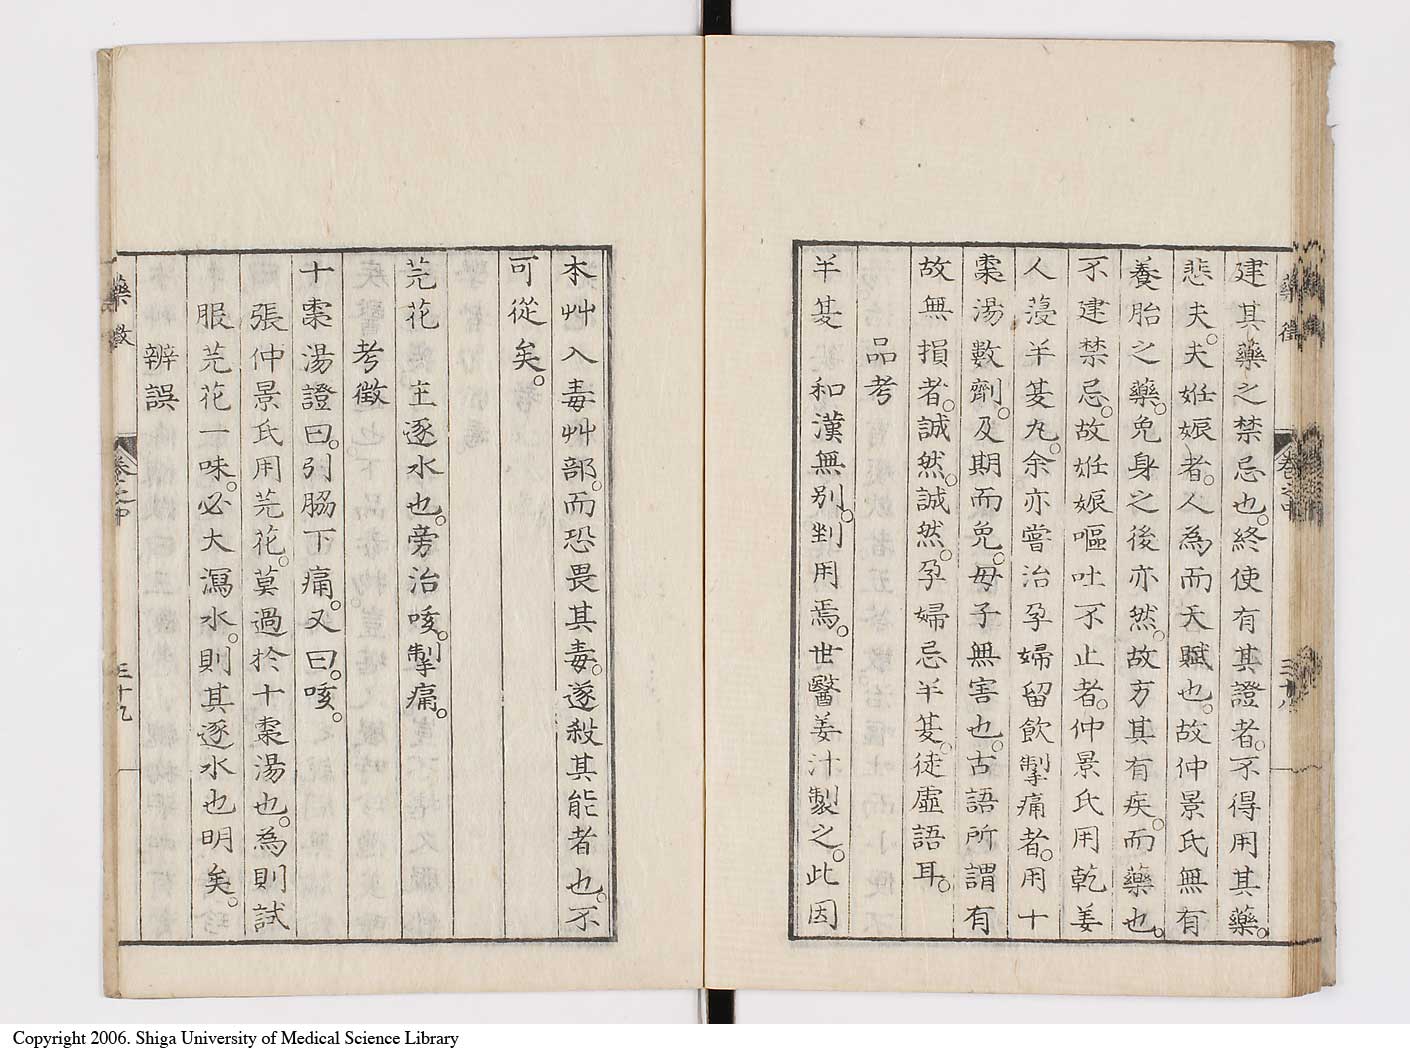 建其藥之禁忌也。終使有其證者。不得用其藥。
悲夫。夫妊娠者。人為而天賦也。故仲景氏無有
養胎之藥。免身之後亦然。故方其有疾。而藥也。
不建禁忌。故妊娠嘔吐不止者。仲景氏用乾姜
人蓡半夏丸。余亦嘗治孕婦留飲掣痛者。用十
棗湯數劑。及期而免。母子無害也。古語所謂有
故無損者。誠然。誠然。孕婦忌半夏。徒虛語耳。
品考
半夏 和漢無別。剉用焉。世醫姜汁製之。此因
藥徵 卷之中 三十八
本艸入毒艸部。而恐畏其毒。遂殺其能者也。不
可從矣。
芫花 主逐水也。旁治咳。掣痛。
考徵
十棗湯證曰。引脇下痛。又曰。咳。
張仲景氏用芫花。莫過於十棗湯也。為則試
服芫花一味。必大瀉水。則其逐水也明矣。
辨誤
藥徵 卷之中 三十九
Copyright 2006. Shiga University of Medical Science Library